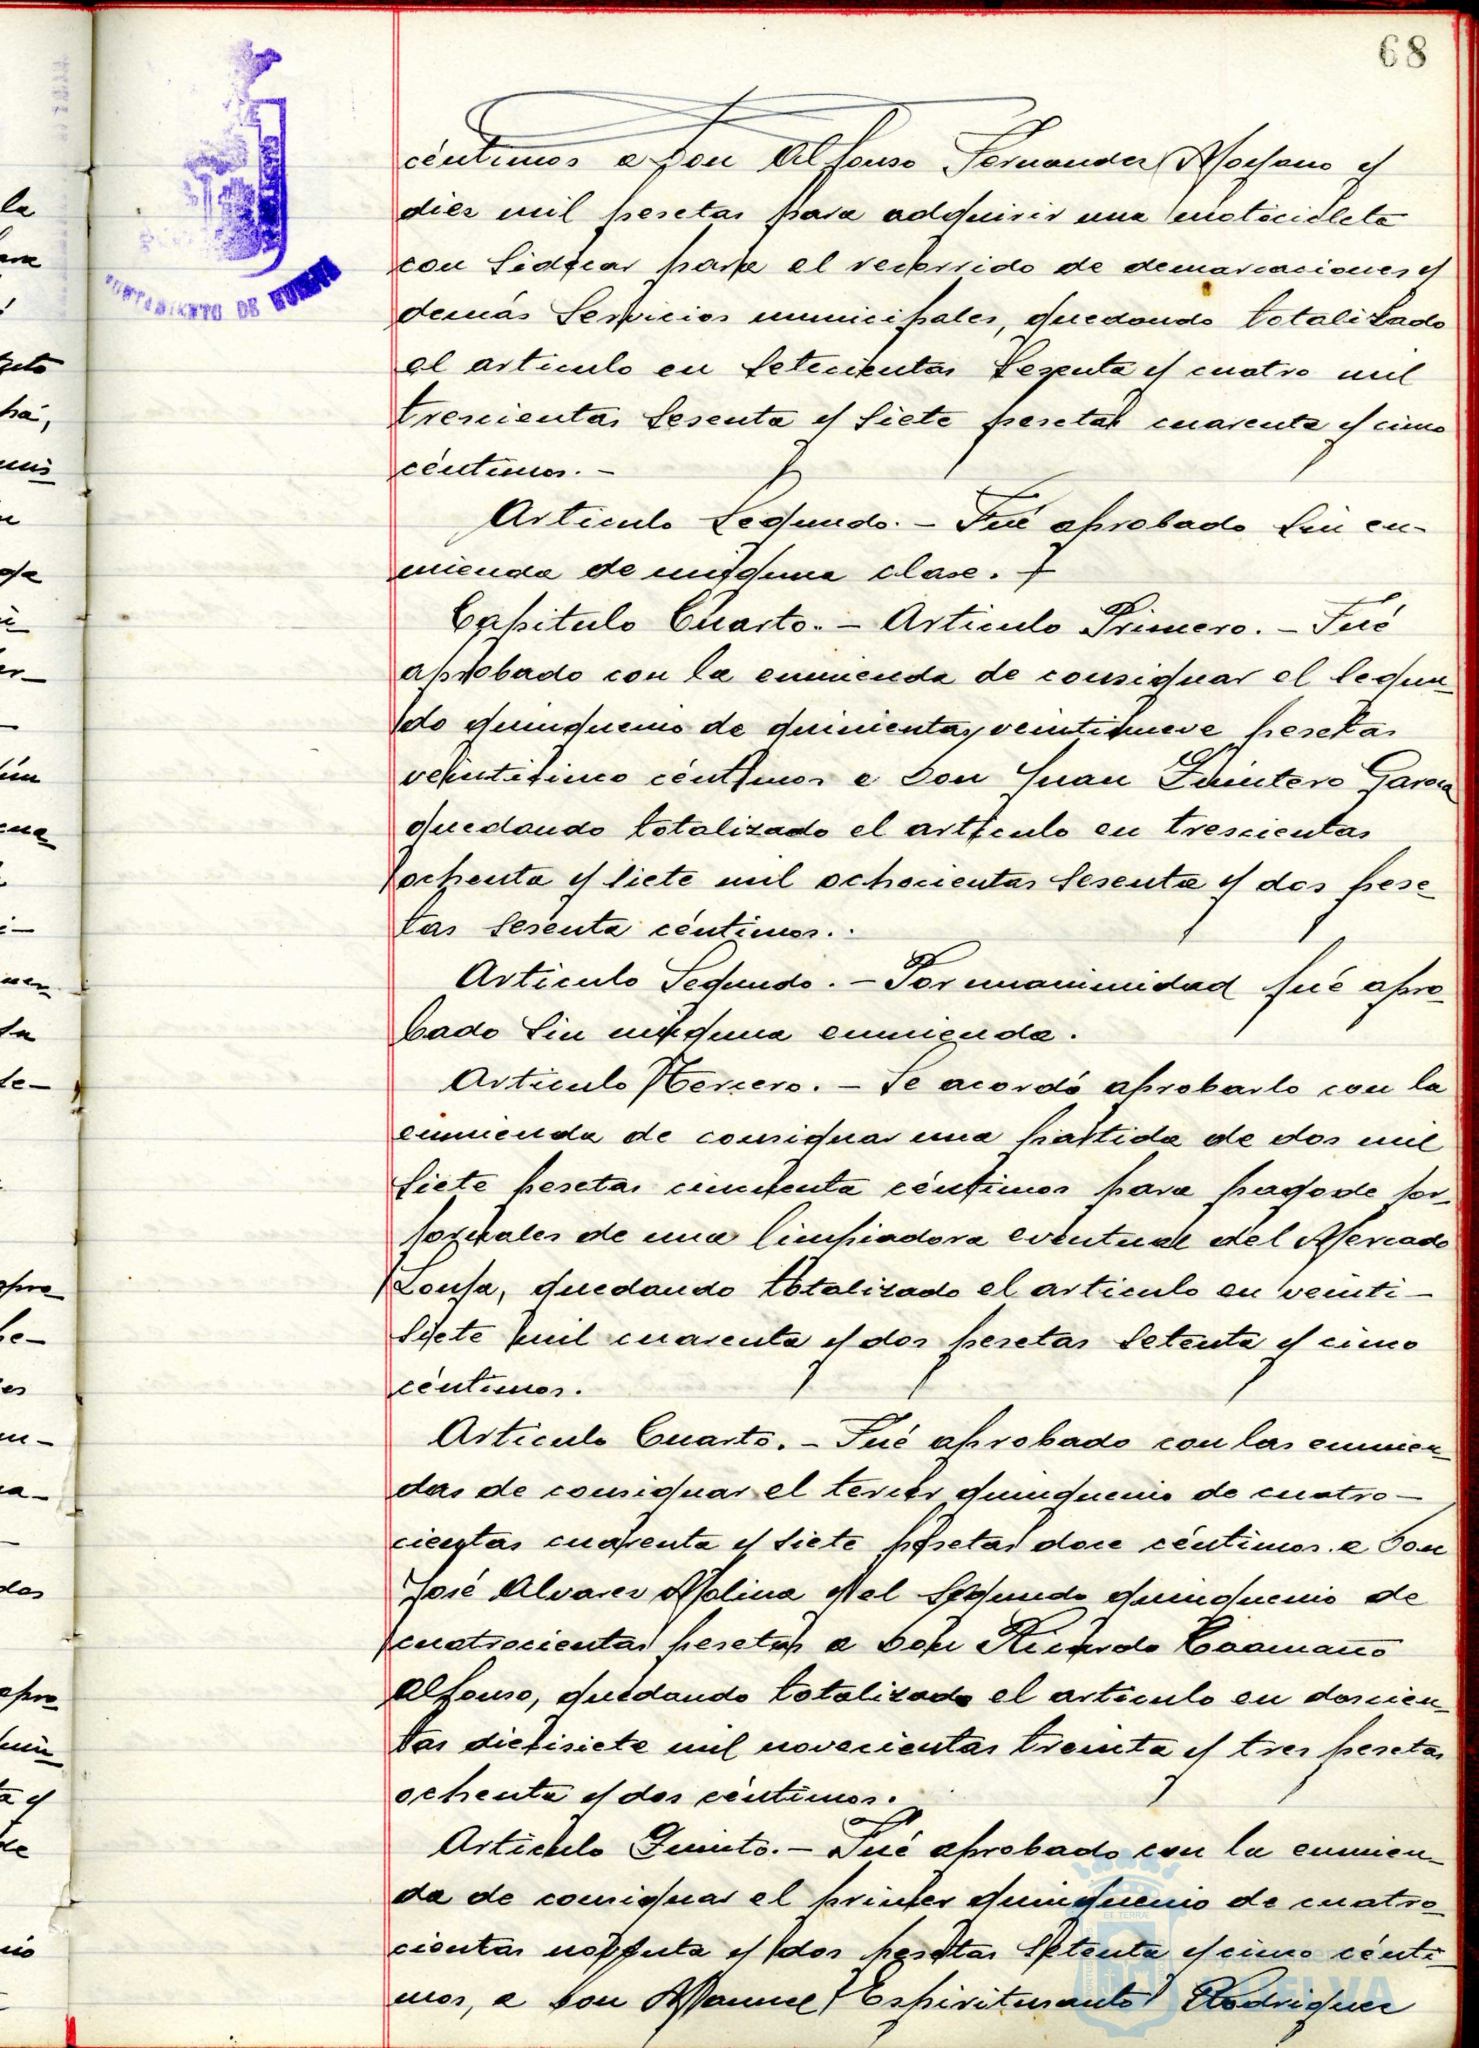 68
céntimos a Don Alfonso Fernandez Moyano y
diez mil pesetas para adquirir una motocicleta
con sidecar para el recorrido de demarcaciones y
demás Servicios municipales, quedando totalizado
el articulo en Setecientas Sesenta y cuatro mil
trescientas Sesenta y Siete pesetas cuarenta y cinco
céntimos.-
Articulo Segundo.- Fué aprobado Sin en-
mienda de ninguna clase.-
Capitulo Cuarto.- Articulo Primero.- Fué
aprobado con la enmienda de consignar el Segun-
do quinquenio de quinientas veintinueve pesetas
veinticinco céntimos a Don Juan Quintero Garcia
quedando totalizado el articulo en trescientas
ochenta y Siete mil ochocientas Sesenta y dos pese-
tas Sesenta céntimos.
Articulo Segundo.- Por unanimidad fué apro-
bado Sin ninguna enmienda.
Articulo Tercero.- Se acordó aprobarlo con la
enmienda de consignar una partida de dos mil
Siete pesetas cincuenta céntimos para pago de jor-
jornales de una limpiadora eventual del Mercado
Lonja, quedando totalizado el articulo en veinti-
Siete mil cuarenta y dos pesetas Setenta y cinco
céntimos.
Articulo Cuarto.- Fué aprobado con las enmien-
das de consignar el tercer quinquenio de cuatro-
cientas cuarenta y Siete pesetas doce céntimos a Don
José Alvarez Molina y el Segundo quinquenio de
cuatrocientas pesetas a Don Ricardo Caamaño
Alfonso, quedando totalizado el articulo en doscien-
tas diecisiete mil novecientas treinta y tres pesetas
ochenta y dos céntimos.
Articulo Quinto.- Fué aprobado con la enmien-
da de consignar el primer quinquenio de cuatro-
cientas noventa y dos pesetas Setenta y cinco cénti-
mos, a Don Manuel Espiritusanto Rodriguez
AYUNTAMIENTO DE HUELVA